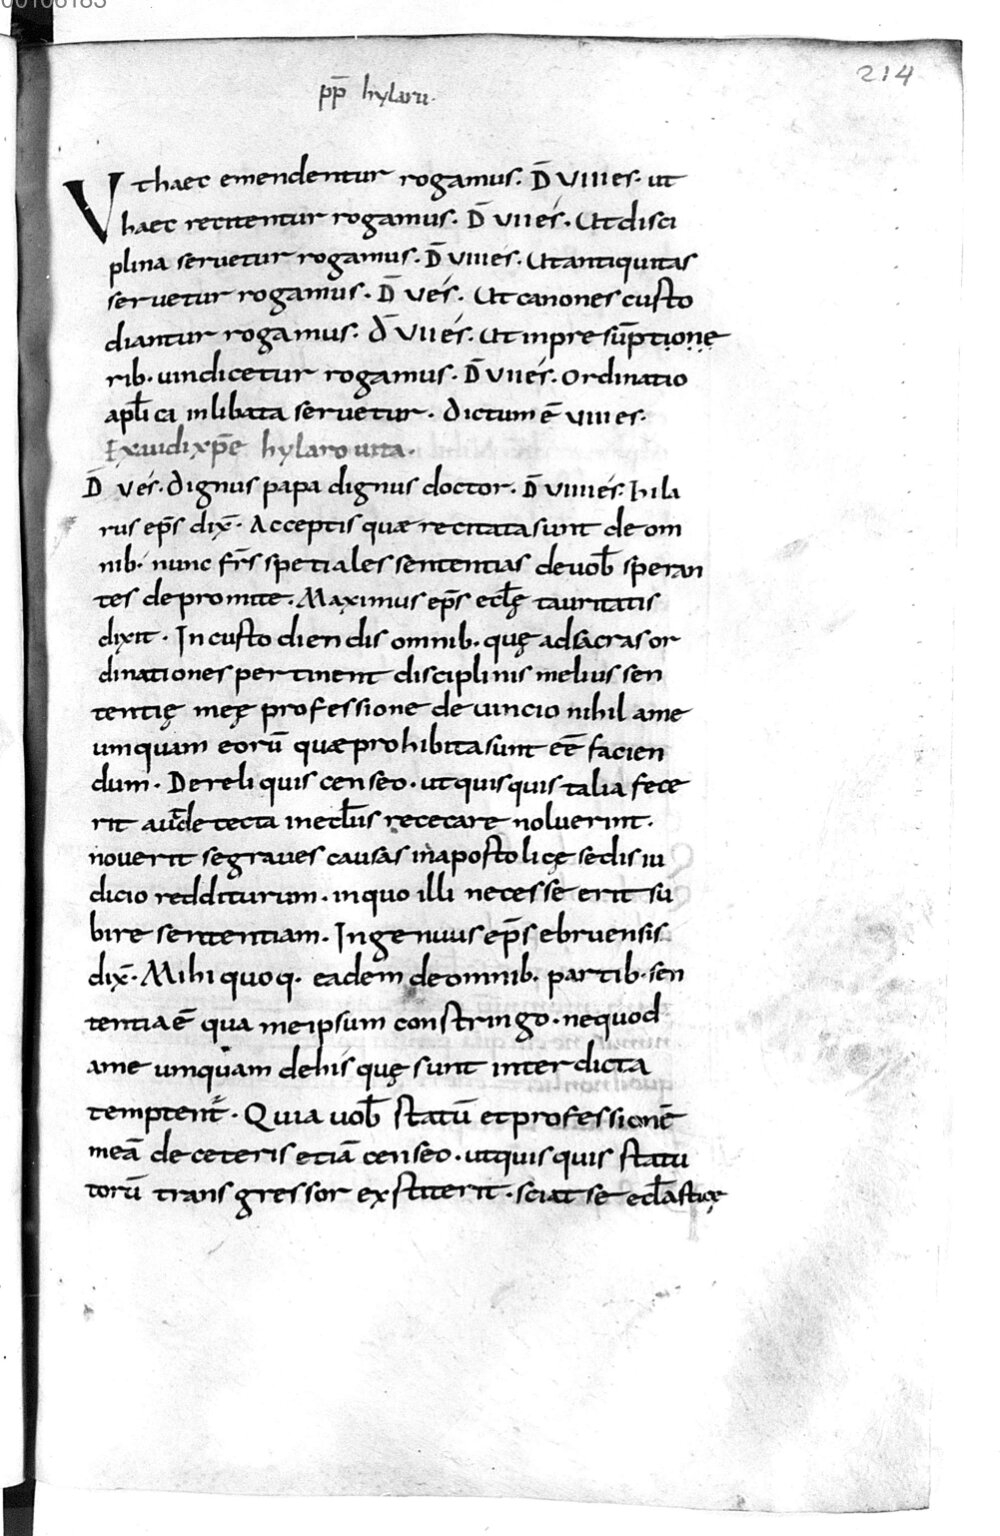 00106183
214
pp̄ hylarii.
Vt haec emendentur rogamus. D̄ VIIII es. ut
haec recitentur rogamus. D̄ VII és. Ut disci
plina seruetur rogamus. D̄ VIII és. Ut antiquitas
seruetur rogamus. D̄ V és. Ut canones custo
diantur rogamus. d̄ VII és. Ut inpresūptione
rib. uindicetur rogamus. D̄ VII és. Ordinatio
apl̄ica inlibata seruetur. dictum ē VIIII es.
Exaudi xp̄e hylaro uita.
D̄ V és. dignus papa dignus doctor. D̄ VIIII és. hila
rus ep̄s dix̄. Acceptis quæ recitata sunt de om
nib. nunc fr̄s spetiales sententias de uob̄ speran
tes depromite. Maximus ep̄s ecl̄ę tauritatis
dixit. In custodiendis omnib. quę ad sacras or
dinationes pertinent disciplinis melius sen
tentię meę professione deuincio nihil a me
umquam eorū quæ prohibita sunt eē facien
dum. De reliquis censeo. ut quisquis talia fece
rit aut̄ detecta in ecl̄iis rececare noluerint.
nouerit se graues causas in apostolicę sedis iu
dicio redditurum. in quo illi necesse erit su
bire sententiam. Ingenuus ep̄s ebruensis
dix̄. Mihi quoq. eadem de omnib. partib. sen
tentia ē qua me ipsum constringo. ne quod
a me umquam de his quę sunt interdicta
temptent̄. Quia uob̄ statū et professionē
meā de ceteris etiā censeo. ut quisquis statu
torū transgressor exstiterit. sciat se ecl̄asticę